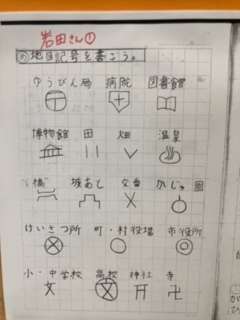 岩田さん①
地図記号を書こう。
ゆうびん局 病院 図書館
博物館 田 畑 温泉
橋 城あと 交番 かじゅ園
けいさつ所 町・村役場 市役所
小・中学校 高校 神社 寺
文 文 卍